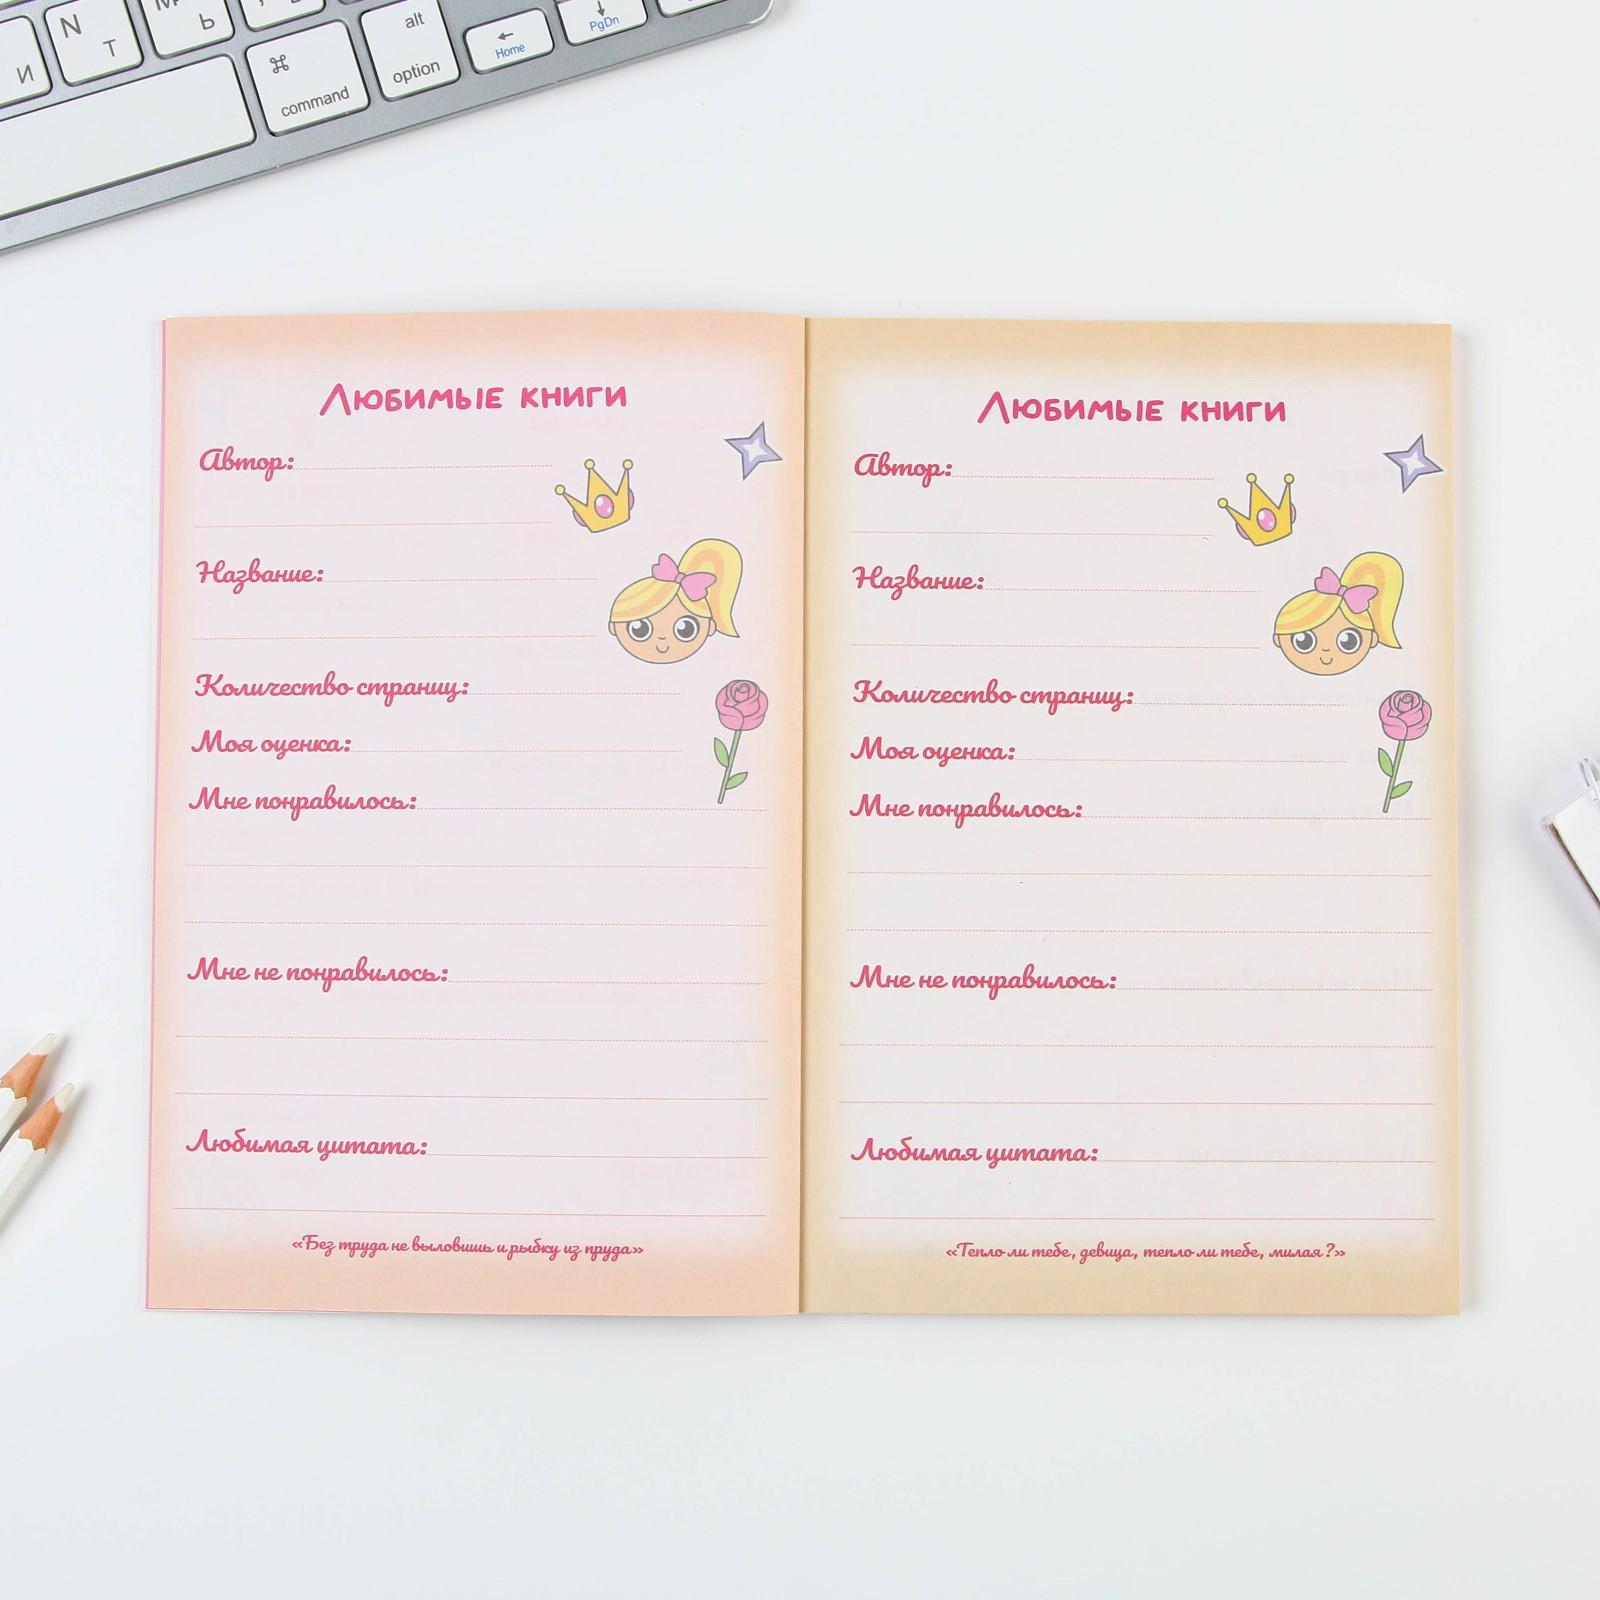 N
И
Т
Ь
⌘
command
alt
option
←
Home
↓
PgDn
Любимые книги
Автор:
Название:
Количество страниц:
Моя оценка:
Мне понравилось:
Мне не понравилось:
Любимая цитата:
«Без труда не выловишь и рыбку из пруда»
Любимые книги
Автор:
Название:
Количество страниц:
Моя оценка:
Мне понравилось:
Мне не понравилось:
Любимая цитата:
«Тепло ли тебе, девица, тепло ли тебе, милая?»